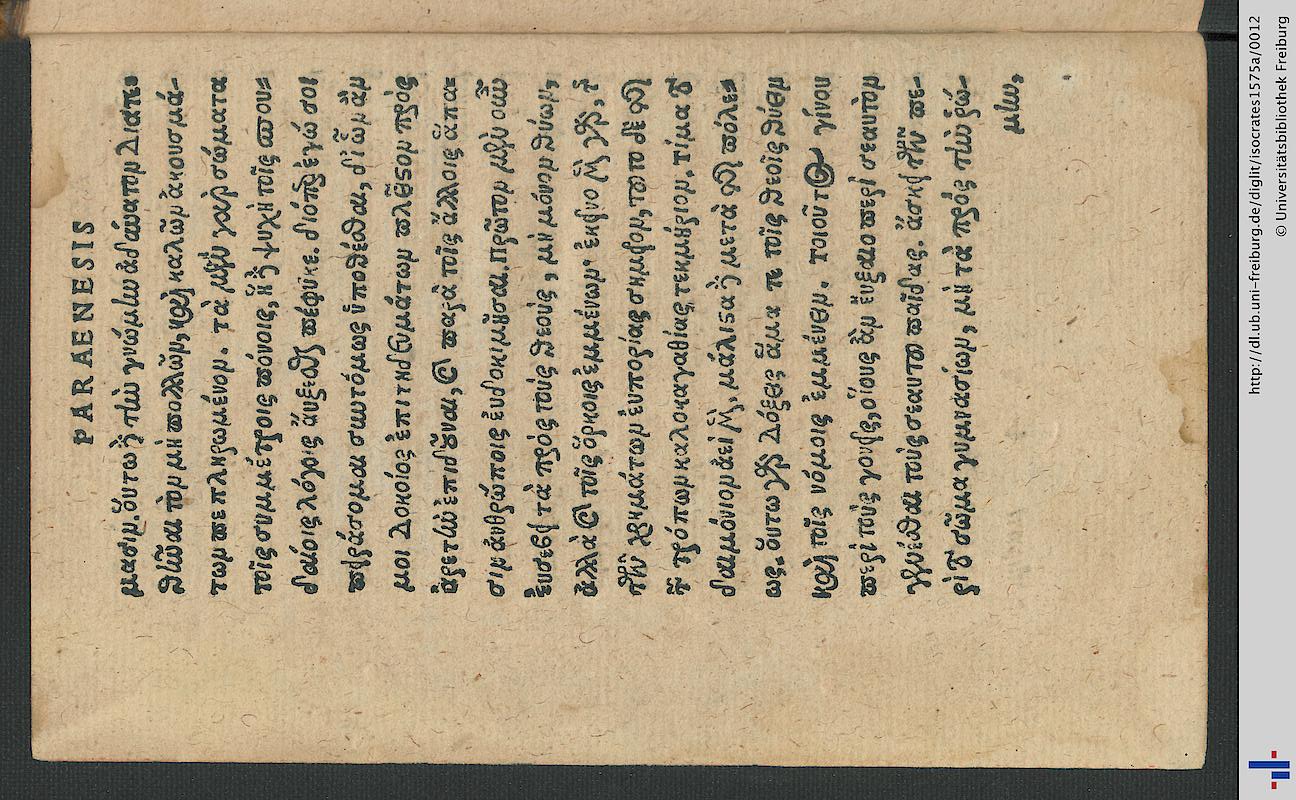 PARAENESIS
μασιν, οὕτω ἢ τὴν γνώμην ἀδύνατον διατε-
θῆναι τὸν μὴ πολλῶν, καὶ καλῶν ἀκουσμά-
των πεπληρωμένον. τὰ μὲν γὰρ σώματα
τοῖς συμμέτροις πόνοις, ἡ δὲ ψυχὴ τοῖς σπου-
δαίοις λόγοις ἄυξεσθαι πέφυκε. διόπερ ἐγώ σοι
πειράσομαι συντόμως ὑποθέσθαι, δι' ὧν ἄν
μοι δοκοίης ἐπιτηδευμάτων πλεῖστον πρὸς
ἀρετὴν ἐπιδοῦναι, καὶ παρὰ τοῖς ἄλλοις ἅπα-
σιν ἀνθρώποις ἐυδοκιμῆσαι. Πρῶτον μὲν οὖν
ἐυσεβεῖ τὰ πρὸς τοὺς θεοὺς, μὴ μόνον θύων,
ἀλλὰ καὶ τοῖς ὅρκοις ἐμμένων. ἐκεῖνο μὲν γὰρ, τῆς
τῶν χρημάτων ἐυπορίας σημεῖον, τοῦτο δὲ τῆς
τῶν τρόπων καλοκαγαθίας τεκμήριον. τίμα τὸ
δαιμόνιον ἀεὶ μὲν, μάλιστα δὲ μετὰ τῆς πόλε-
ως. οὕτω γὰρ δόξεις ἅμα τε τοῖς θεοῖς θύειν
καὶ τοῖς νόμοις ἐμμένειν. τοιοῦτος γίνου
περὶ τοὺς γονεῖς, οἵους ἂν εὔξαιο περὶ σεαυτὸν
γενέσθαι τοὺς σεαυτοῦ παῖδας. ἄσκει τῶν πε-
ρὶ τὸ σῶμα γυμνασίων, μὴ τὰ πρὸς τὴν ῥώ-
μην,
http://dl.ub.uni-freiburg.de/diglit/isocrates1575a/0012
© Universitätsbibliothek Freiburg